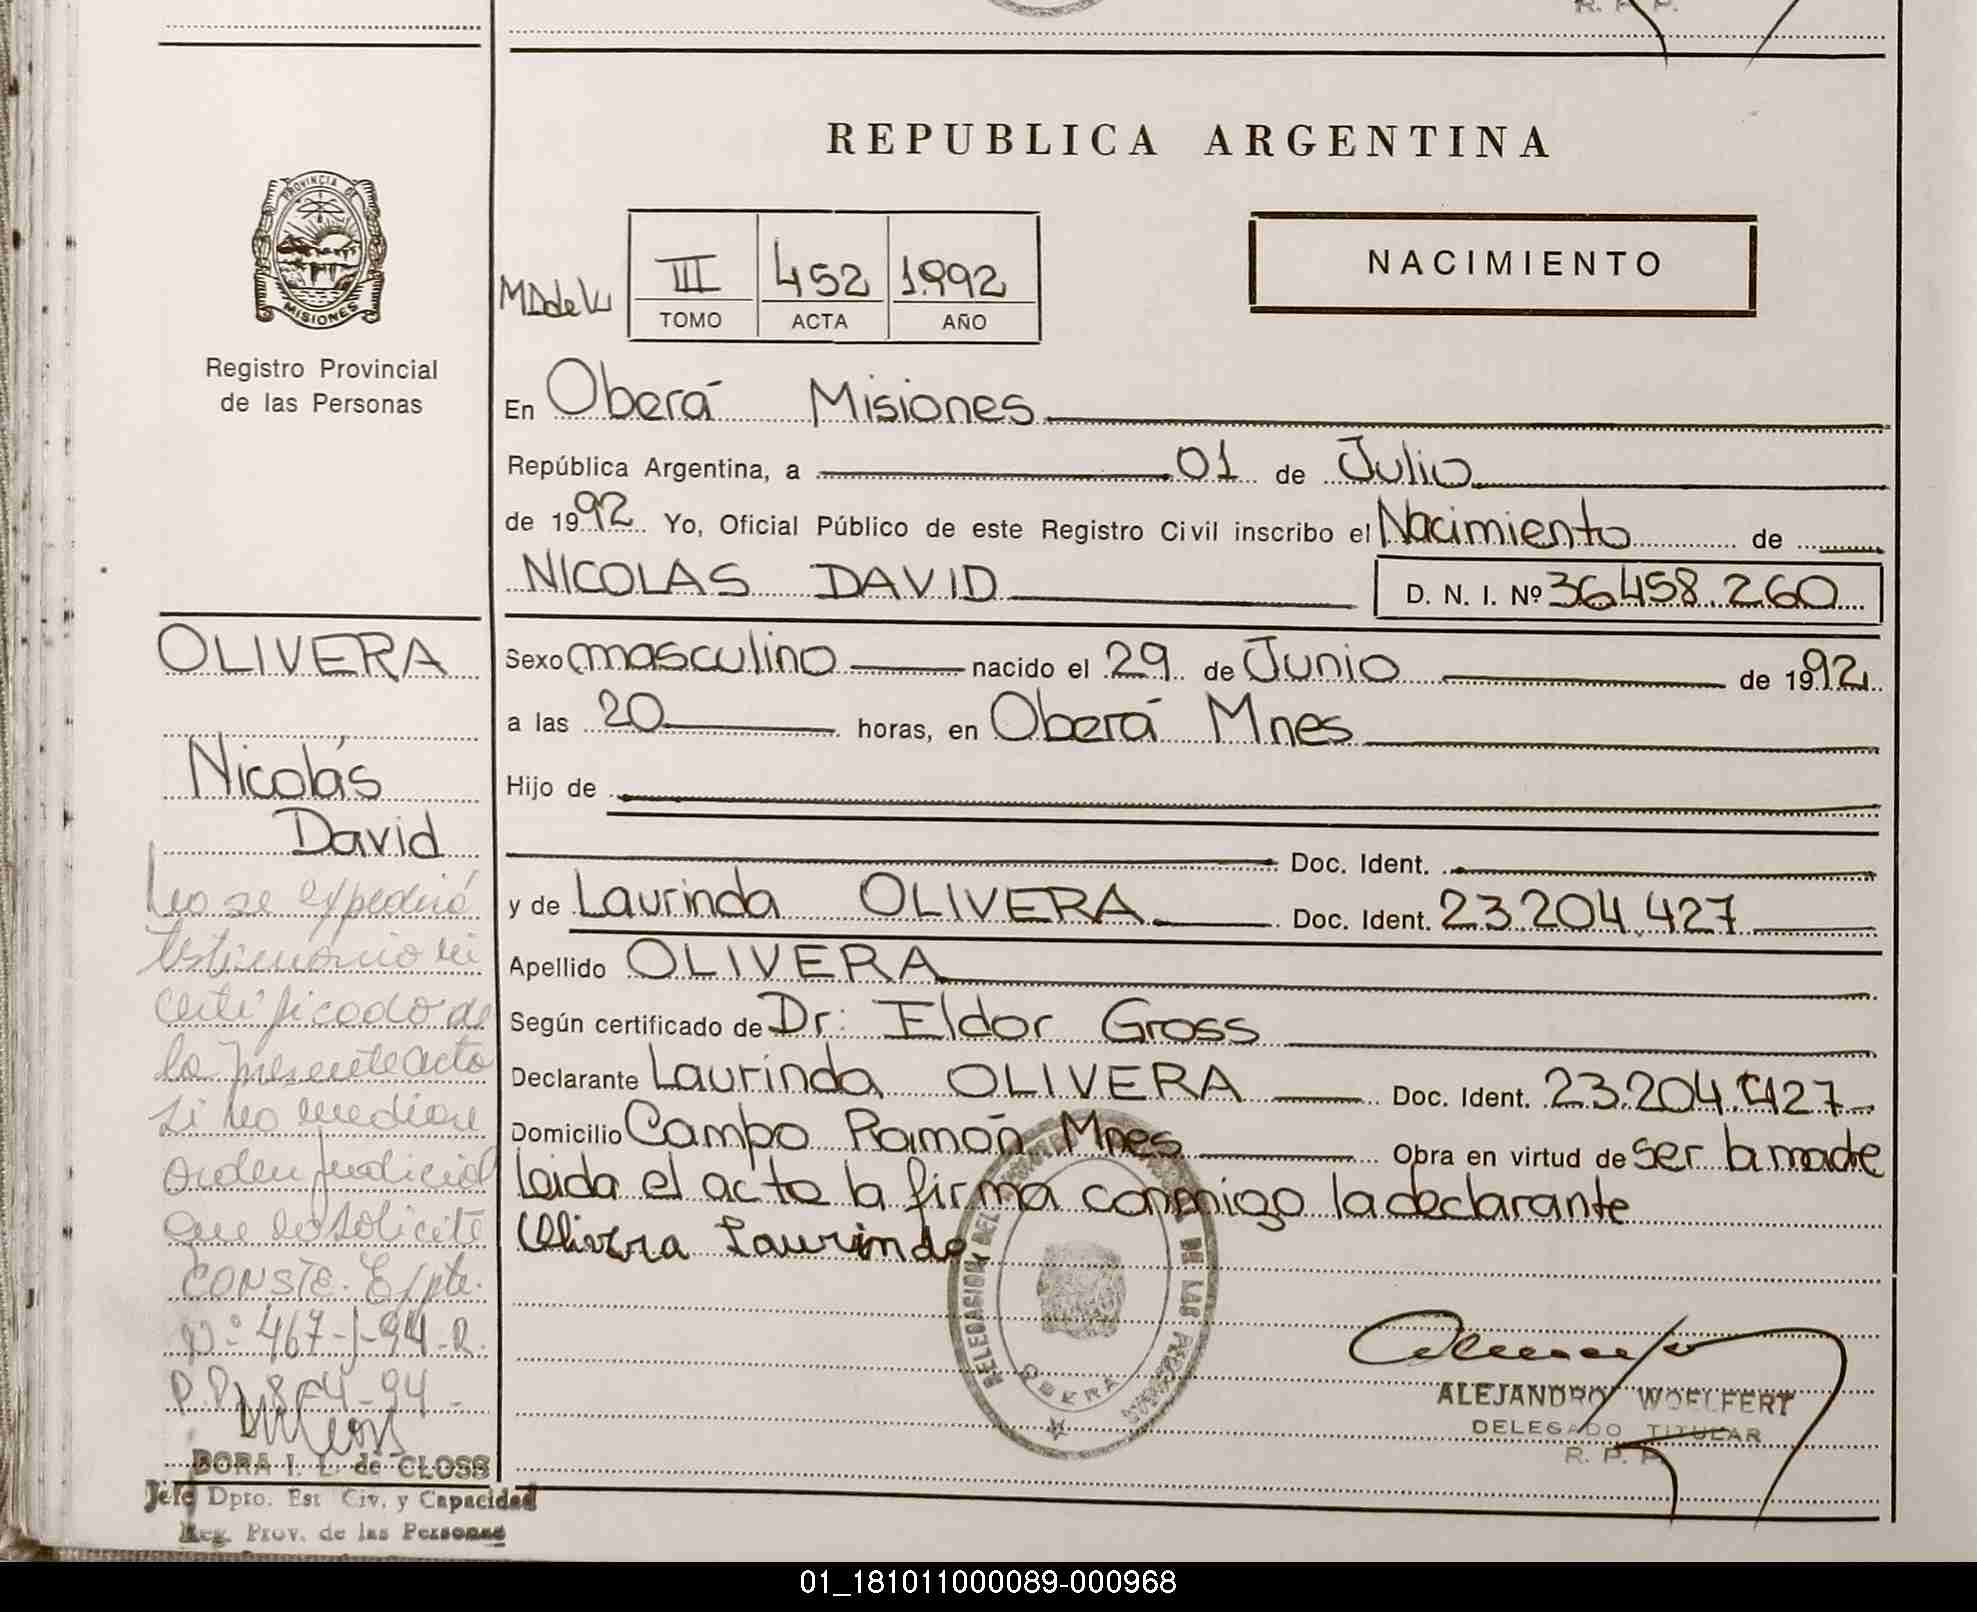 R. P. P.
REPUBLICA ARGENTINA
PROVINCIA DE
MISIONES
Registro Provincial
de las Personas
III 452 1992
TOMO ACTA AÑO
NACIMIENTO
En Oberá Misiones
República Argentina, a 01 de Julio
de 1992 Yo, Oficial Público de este Registro Civil inscribo el Nacimiento de
NICOLAS DAVID D. N. I. Nº 36458.260
OLIVERA
Nicolás
David
Sexo masculino nacido el 29 de Junio de 1992
a las 20 horas, en Oberá Mnes
Hijo de
Doc. Ident.
y de Laurinda OLIVERA Doc. Ident. 23.204.427
Apellido OLIVERA
Según certificado de Dr: Eldor Gross
Declarante Laurinda OLIVERA Doc. Ident. 23.204.427
Domicilio Campo Ramón Mnes Obra en virtud de ser la madre
leida el acta la firma conmigo la declarante
Olivera Laurinda
No se expedirá
testimonio ni
certificado de
la presente acta
si no mediare
orden judicial
que lo solicite
CONSTE. Expte.
Nº 467-J-94-R.
DELEGACION DEL DE LAS PERSONAS
OBERA
ALEJANDRO WOELFERT
DELEGADO TITULAR
R. P. P.
DORA I. L. de CLOSS
Jefe Dpto. Est Civ. y Capacidad
Reg. Prov. de las Personas
01_181011000089-000968